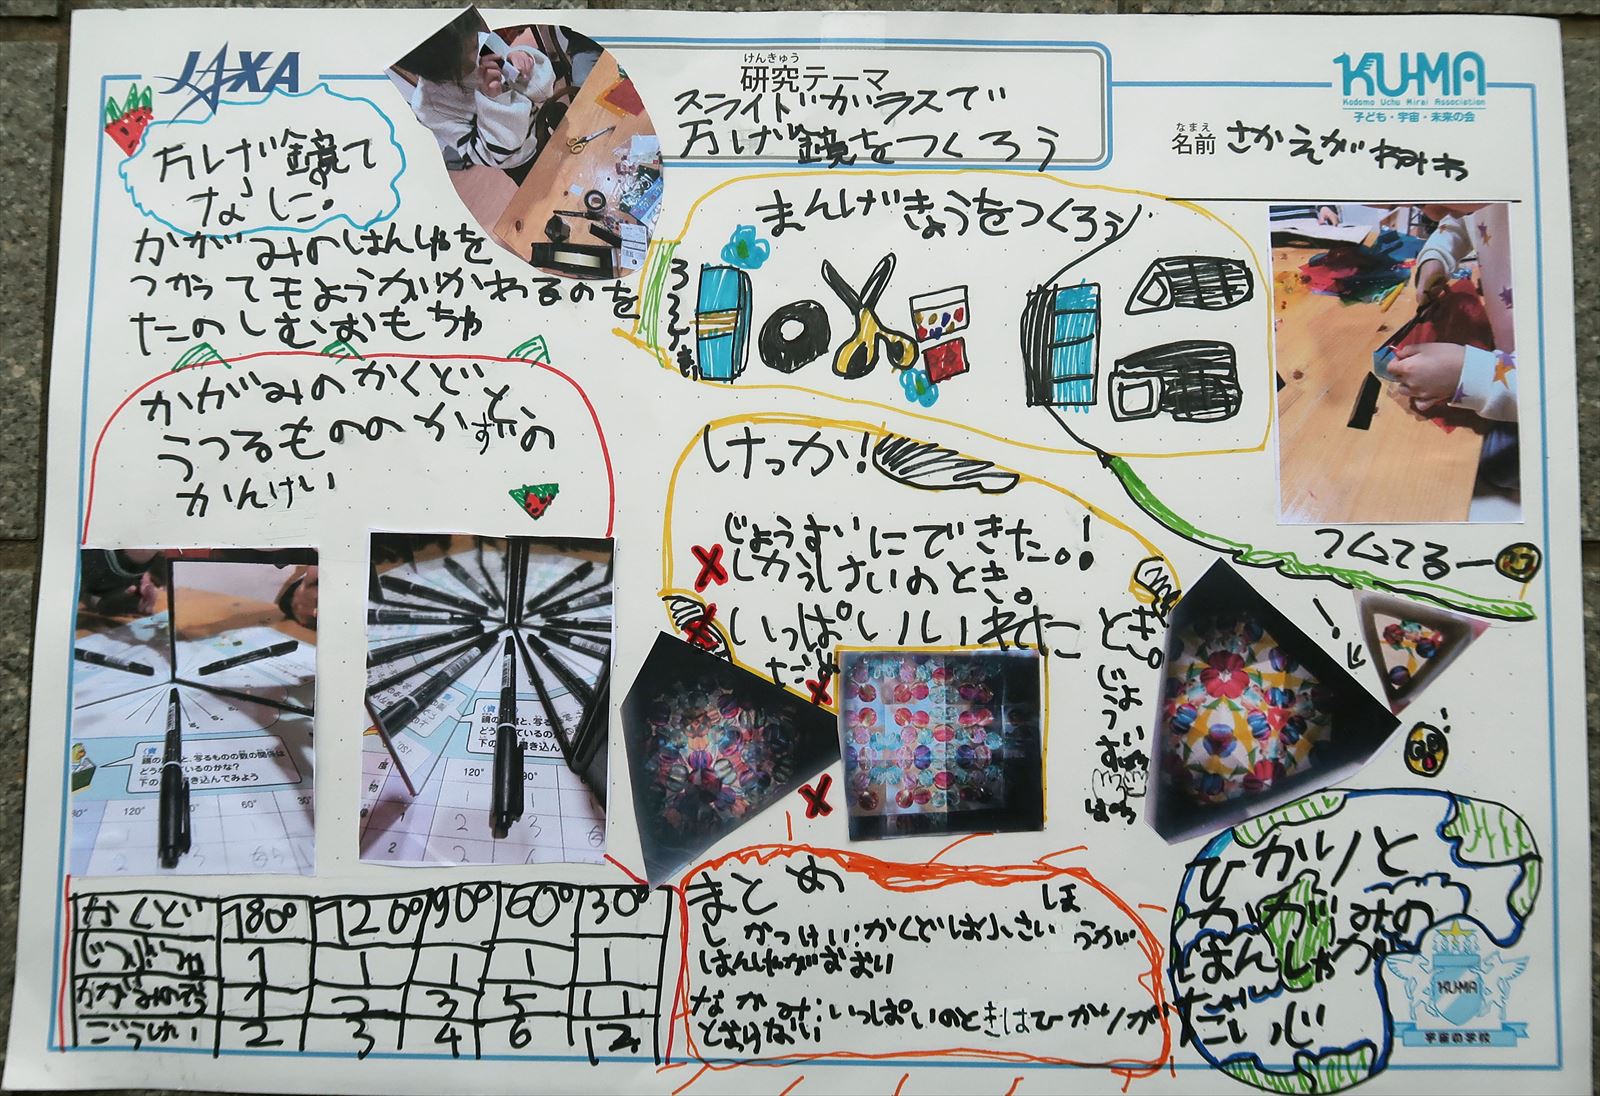 JAXA
けんきゅう
研究テーマ
スライドガラスで
万げ鏡をつくろう
KU-MA
Kodomo Uchu Mirai Association
子ども・宇宙・未来の会
なまえ
名前 さかえがわ
万げ鏡て
なに?
かがみのはんしゃを
つかってもようがかわるのを
たのしむおもちゃ
まんげきょうをつくろう
かがみのかくどと、
うつるもののかずの
かんけい
けっか!
じょうずにできた。!
しかっしさいのとき。
いっぱいいれた とき。
だめ
つくてるー
!
じょうず
はのち
120° 90°
〈資
鏡の 数と、写るものの数の関係は
どうなっているのかな?
下の 書き込んでみよう
120° 60° 30°
かくど 180° 120° 90° 60° 30°
じつぶつ 1 1 1 1 1
かがみのぞう 1 2 3 5 11
ごうけい 2 3 4 6 12
まとめ
しかっけい:かくどは小さい ほうが
はんしゃがおおい
なかみ:いっぱいのときはひかりが
とおらない
ひかりと
かがみの
はんしゃが
だいじ
KU-MA
宇宙の学校